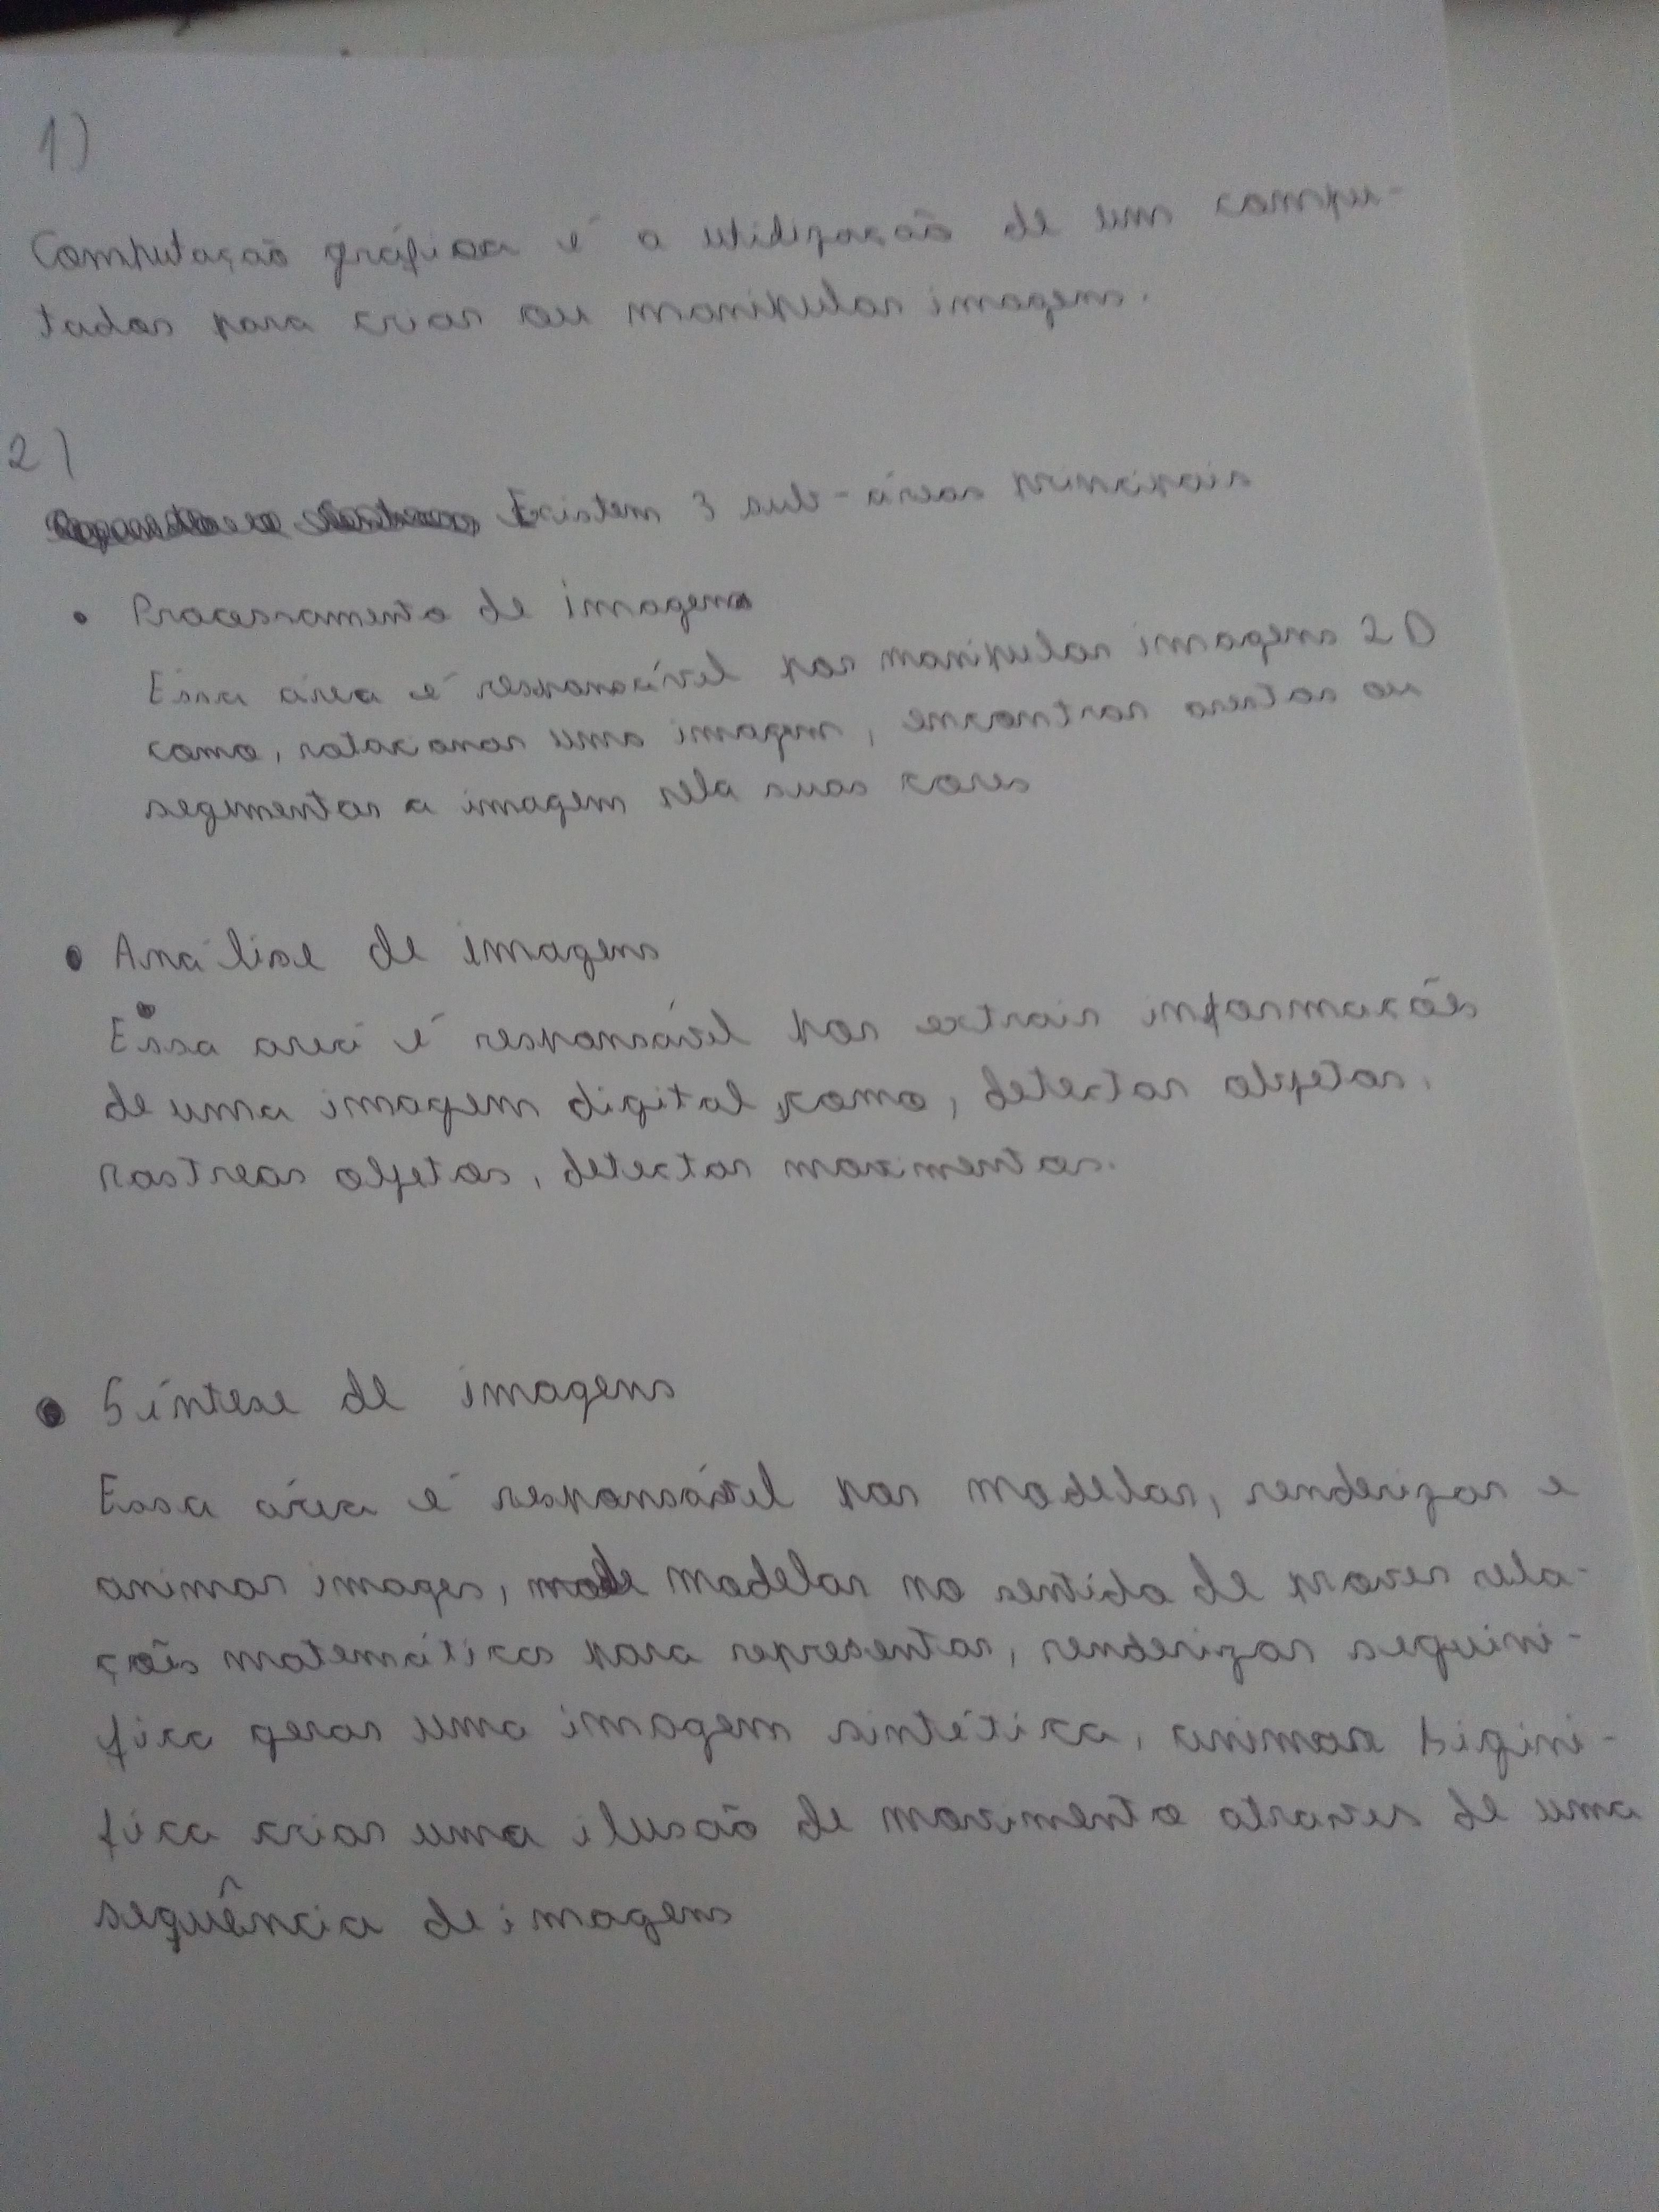 1)
Computação gráfica é a utilização de um compu-
tador para criar ou manipular imagens.
2)
Existem 3 sub-áreas principais
• Processamento de imagens
Essa área é responsável por manipular imagens 2D
como, rotacionar uma imagem, encontrar rostos ou
segmentar a imagem pela suas cores
• Análise de imagens
Essa área é responsável por extrair informações
de uma imagem digital, como, detectar objetos,
rastrear objetos, detectar movimentos.
• Síntese de imagens
Essa área é responsável por modelar, renderizar e
animar images, modelar no sentido de prover rela-
ções matemáticas para representar, renderizar signi-
fica gerar uma imagem sintética, animar signi-
fica criar uma ilusão de movimento através de uma
sequência de imagens